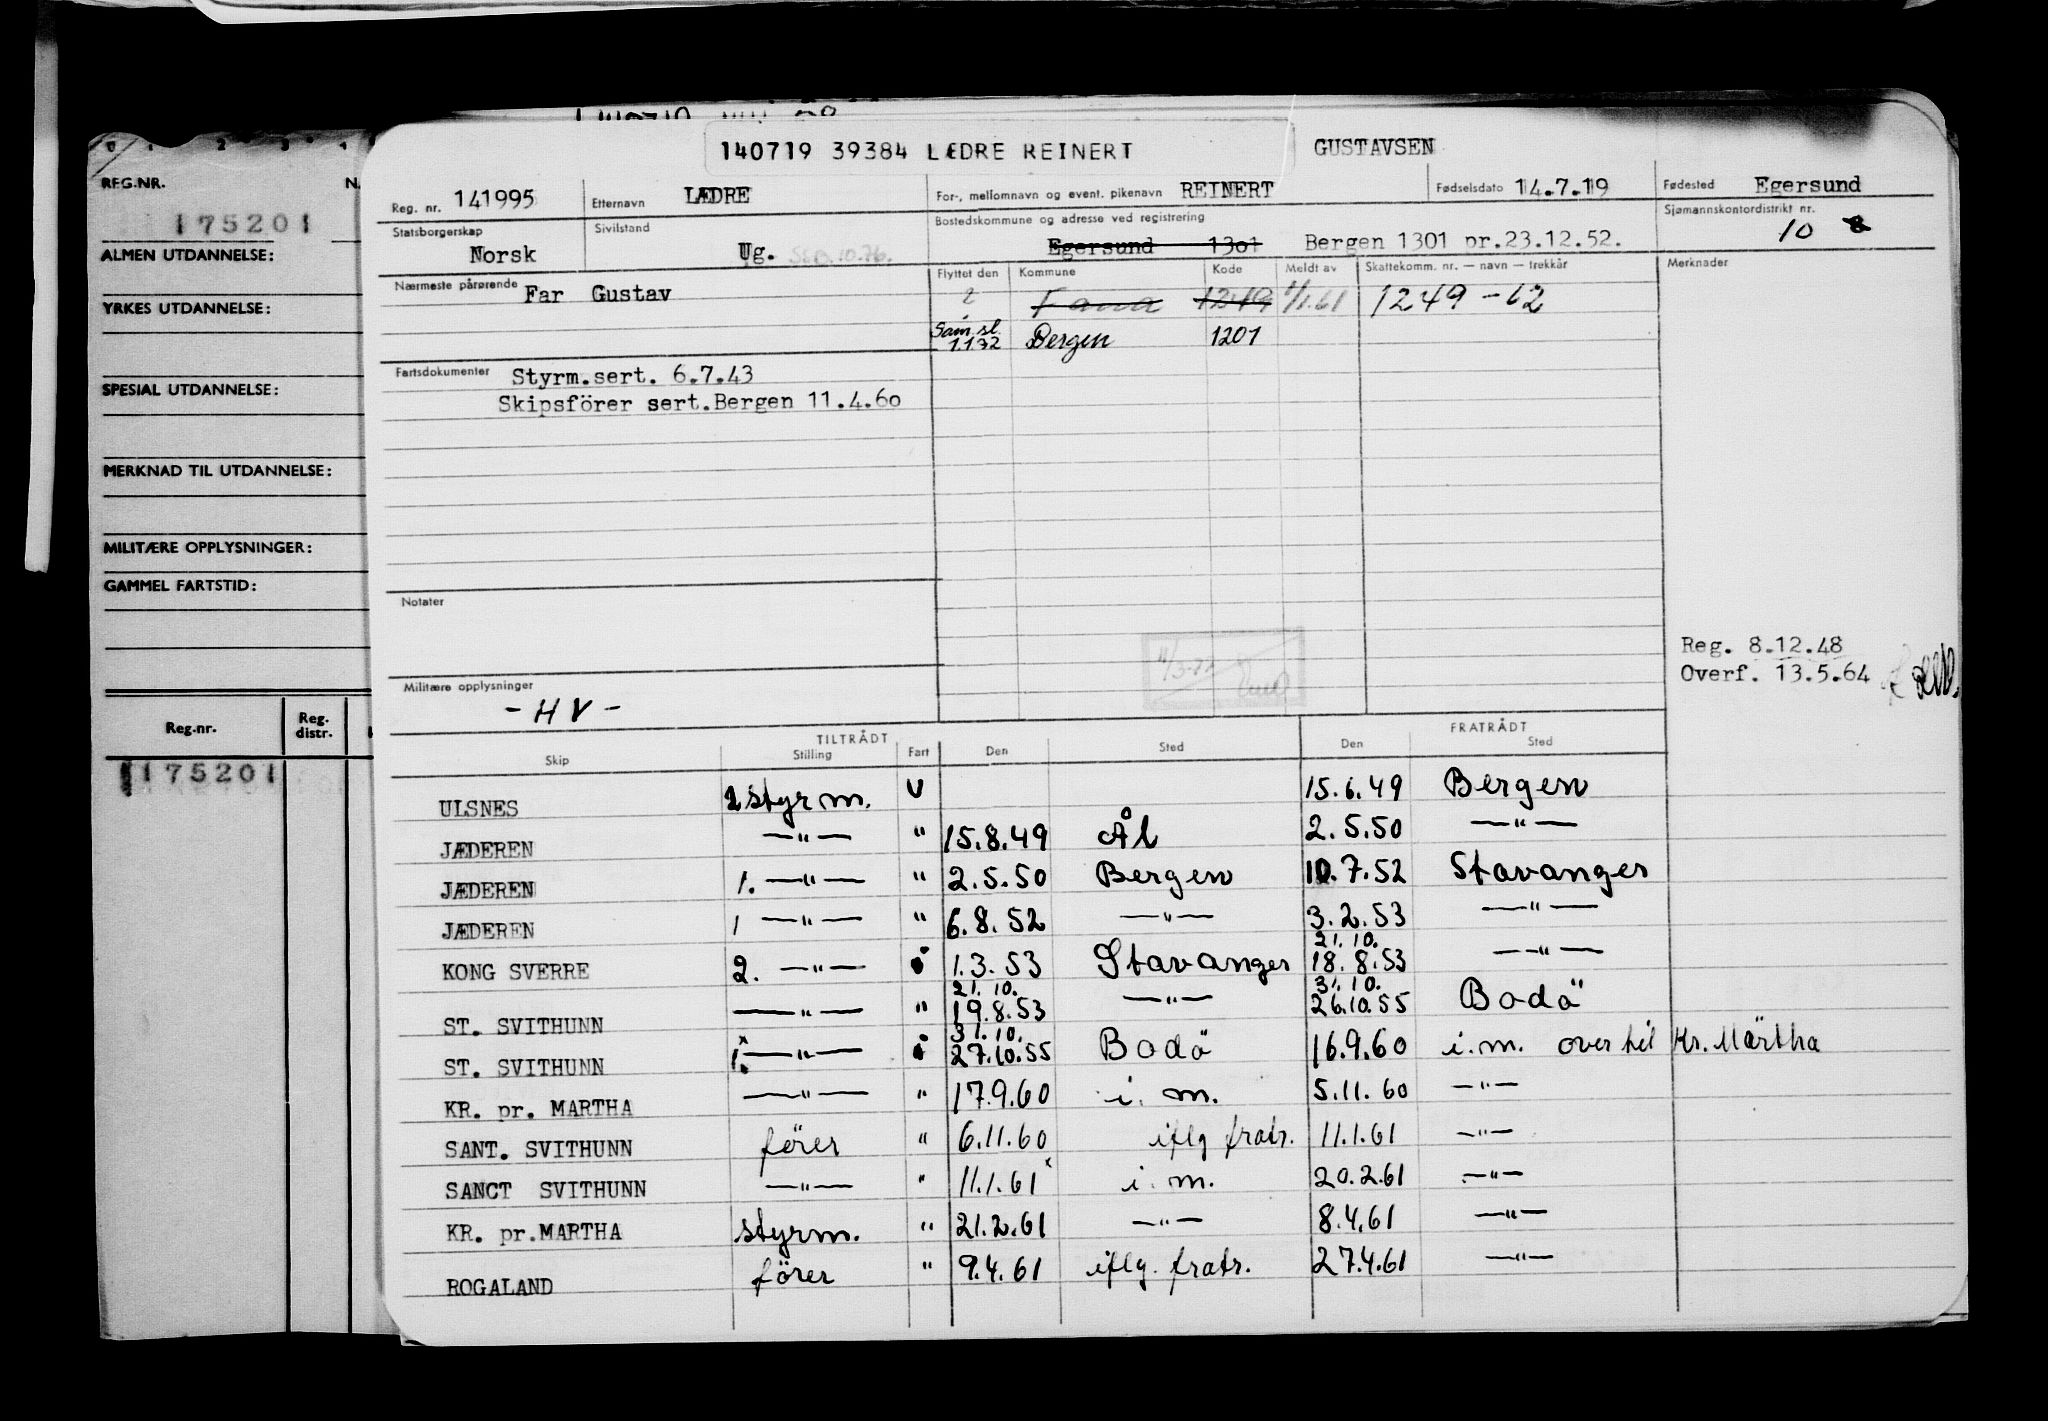 140719 39384 LÆDRE REINERT GUSTAVSEN
Reg. nr. 141995 Etternavn LÆDRE For-, mellomnavn og event. pikenavn REINERT Fødselsdato 14.7.19 Fødested Egersund
Statsborgerskap Norsk Sivilstand Ug. Bostedskommune og adresse ved registrering Egersund 1301 Bergen 1301 pr.23.12.52. Sjømannskontordistrikt nr. 10 8
Nærmeste pårørende Far Gustav
Flyttet den Kommune Kode Meldt av Skattekomm. nr. — navn — trekkår Merknader
? Fana 1249 1/1.61 1249 - 62
Sam.sl. 1.1 72 Bergen 1201
Fartsdokumenter Styrm.sert. 6.7.43
Skipsförer sert.Bergen 11.4.60
Notater
Reg. 8.12.48
Overf. 13.5.64
Militære opplysninger
- H V -
TILTRÅDT FRATRÅDT
Skip Stilling Fart Den Sted Den Sted
ULSNES 2 styrm. V 15.6.49 Bergen
JÆDEREN —"— " 15.8.49 Ål 2.5.50 —"—
JÆDEREN 1. —"— " 2.5.50 Bergen 10.7.52 Stavanger
JÆDEREN 1 —"— " 6.8.52 —"— 3.2.53 —"—
21.10.
KONG SVERRE 2. —"— 1.3.53 Stavanger 18.8.53 —"—
21.10. 31.10.
ST. SVITHUNN —"— " 19.8.53 —"— 26.10.55 Bodö
31.10.
ST. SVITHUNN 1. —"— 27.10.55 Bodö 16.9.60 i.m. over til Kr. Märtha
KR. pr. MARTHA —"— " 17.9.60 i. m. 5.11.60 —"—
SANT. SVITHUNN förer " 6.11.60 iflg fratr. 11.1.61 —"—
SANCT SVITHUNN —"— " 11.1.61 i. m. 20.2.61 —"—
KR. pr.MARTHA styrm. " 21.2.61 —"— 8.4.61 —"—
ROGALAND förer " 9.4.61 iflg. fratr. 27.4.61 —"—
REG.NR.
175201
ALMEN UTDANNELSE:
YRKES UTDANNELSE:
SPESIAL UTDANNELSE:
MERKNAD TIL UTDANNELSE:
MILITÆRE OPPLYSNINGER:
GAMMEL FARTSTID:
Reg.-nr. Reg. distr.
175201